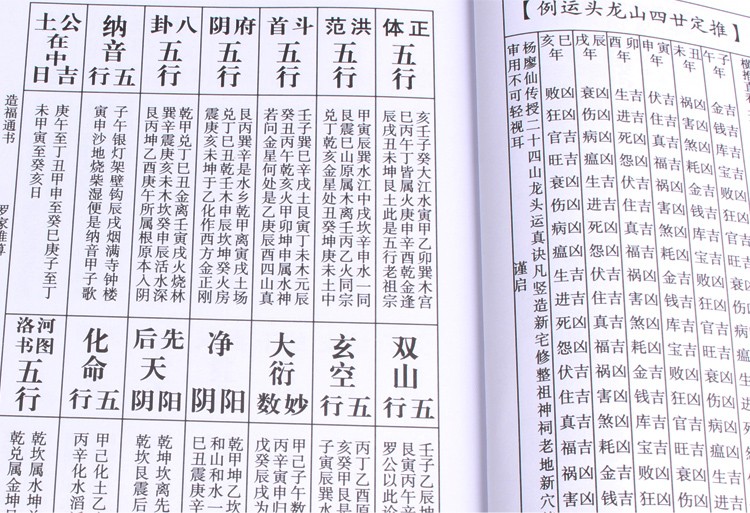 【推定廿四山龙头运例】
子午年 金吉 钱吉 库吉 宝吉 败凶 狂凶 官吉 旺吉 衰凶 伤凶 病凶 瘟凶
丑未年 祸凶 伤凶 煞凶 耗凶 金吉 钱吉 库吉 宝吉 败凶 狂凶 官吉 旺吉 衰凶 伤凶 病凶 瘟凶 生吉 进吉
寅申年 伏吉 害凶 真吉 福吉 祸凶 伤凶 煞凶 耗凶 金吉 钱吉 库吉 宝吉 败凶 狂凶 官吉 旺吉 衰凶 伤凶
卯酉年 生吉 进吉 死凶 怨凶 伏吉 害凶 真吉 福吉 祸凶 伤凶 煞凶 耗凶 金吉 钱吉 库吉 宝吉 败凶 狂凶
辰戌年 衰凶 伤凶 病凶 瘟凶 生吉 进吉 死凶 怨凶 伏吉 害凶 真吉 福吉 祸凶 伤凶 煞凶 耗凶 金吉 钱吉
巳亥年 败凶 狂凶 官吉 旺吉 衰凶 伤凶 病凶 瘟凶 生吉 进吉 死凶 怨凶 伏吉 害凶 真吉 福吉 祸凶 害凶
杨廖仙传授二十四山龙头运真诀凡竖造新宅修整祖神祠老地新穴
审用不可轻视耳
谨启
正体五行
亥壬子癸大江水寅甲乙卯巽木宫
巳丙午丁皆属火庚申辛酉乾金逢
辰戌丑未坤艮土此是五行老祖宗
洪范五行
甲寅辰巽水江中戌坎辛申水一同
艮震巳山原属木离壬丙乙火同宗
兑丁乾亥金星处丑癸坤庚未土中
斗首五行
壬子巽巳辛戌土寅艮丁未木元辰
癸丑丙午乾亥火甲卯坤申属水神
若问金星何处是乙庚辰酉四山真
府阴五行
艮丙巽辛是水乡乾甲离寅戌土场
兑丁巳丑乾壬木申辰坎坤癸火房
震庚亥未坤于乙化作西方金正刚
八卦五行
乾甲兑丁巳丑金离壬寅戌火烧林
巽辛震庚亥未木坎癸申辰活水深
艮丙坤乙酉庚午所属根原本入阴
纳音五行
子午银灯架壁钩辰戌烟满寺钟楼
寅申沙地烧柴湿便是纳音甲子歌
公土在中吉日
庚午至丁丑甲申至癸巳庚子至丁
未甲寅至癸亥日
双山五行
壬子乙辰坤
艮寅丙午
罗公以此论
玄空五行
丙丁乙酉
亥癸甲艮是
子寅辰巽
大衍妙数
甲己子午数
丙辛寅申
戊癸辰戌为
净阴阳
乾甲坤乙坎
和山和水一
巳丑震庚
先后天阴阳
乾坤坎离先
坎艮震巽后
化命五行
甲己化土乙
丙辛化水
河图洛书五行
乾坎属水坤
乾兑属金坤
造福通书
罗家推算